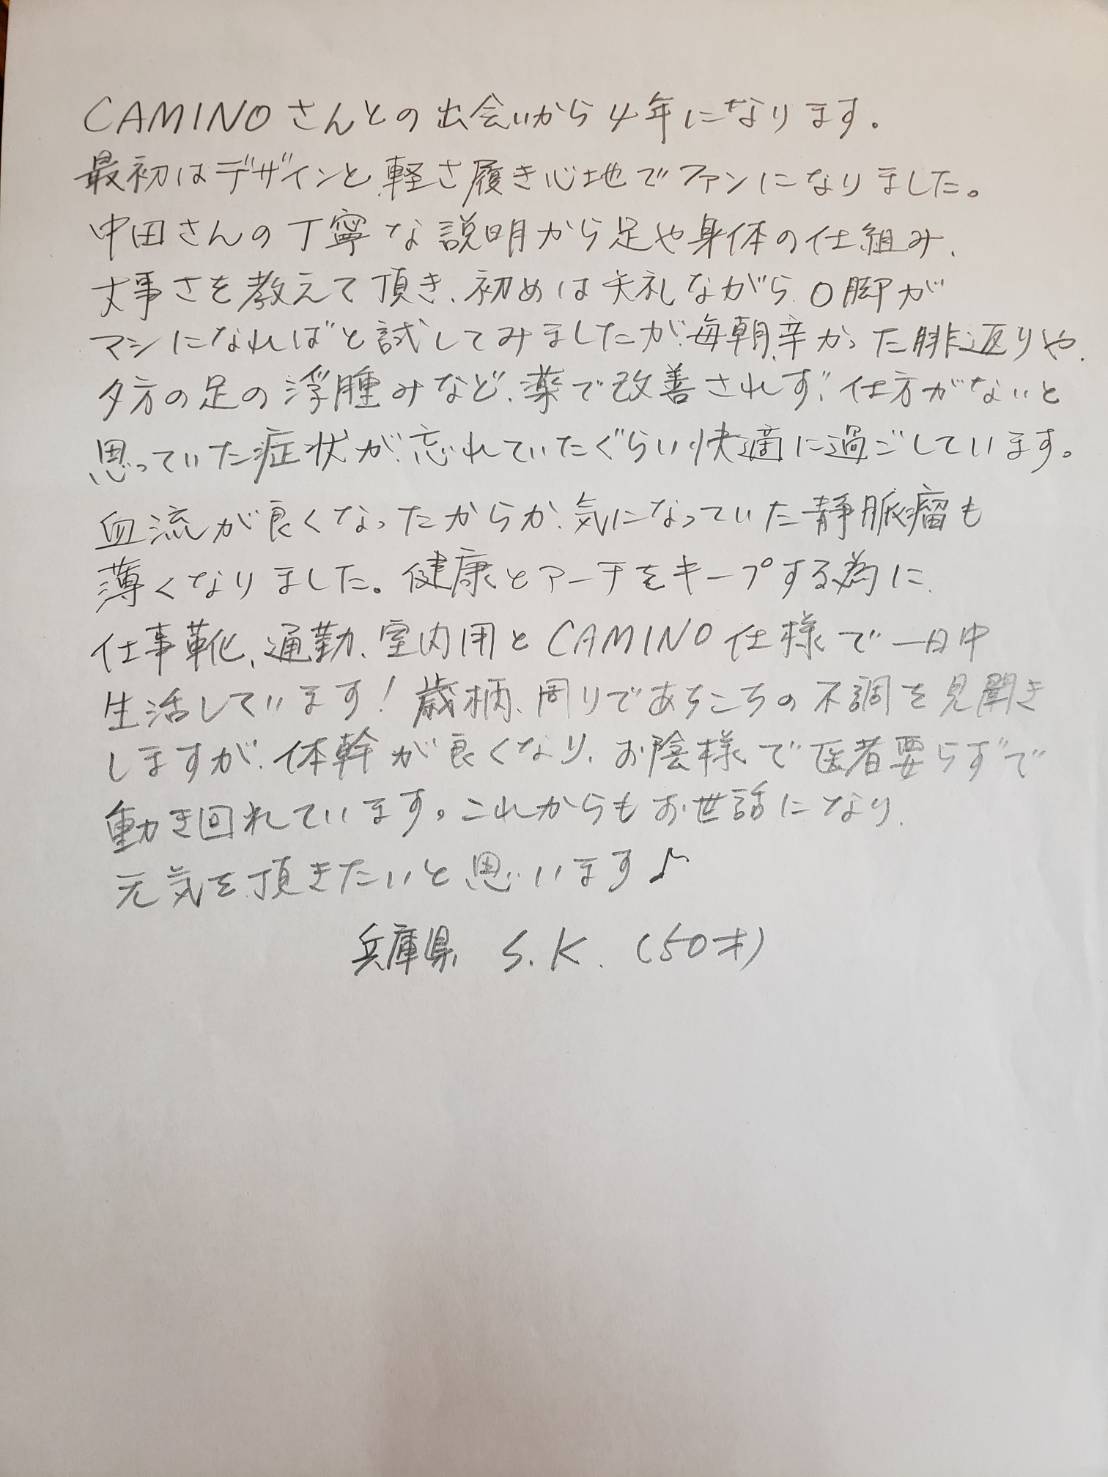 CAMINOさんとの出会いから4年になります。
最初はデザインと、軽さ履き心地でファンになりました。
中田さんの丁寧な説明から足や身体の仕組み、
大事さを教えて頂き、初めは失礼ながら、O脚が
マシになればと試してみましたが、毎朝、辛かった腓返りや、
夕方の足の浮腫みなど、薬で改善されず、仕方がないと
思っていた症状が、忘れていたぐらい快適に過ごしています。
血流が良くなったからか、気になっていた静脈瘤も
薄くなりました。健康とアーチをキープする為に、
仕事靴、通勤、室内用とCAMINO仕様で一日中
生活しています！歳柄、周りであちこちの不調を見聞き
しますが、体幹が良くなり、お陰様で医者要らずで
動き回れています。これからもお世話になり、
元気を頂きたいと思います♪
兵庫県 S.K.(50才)